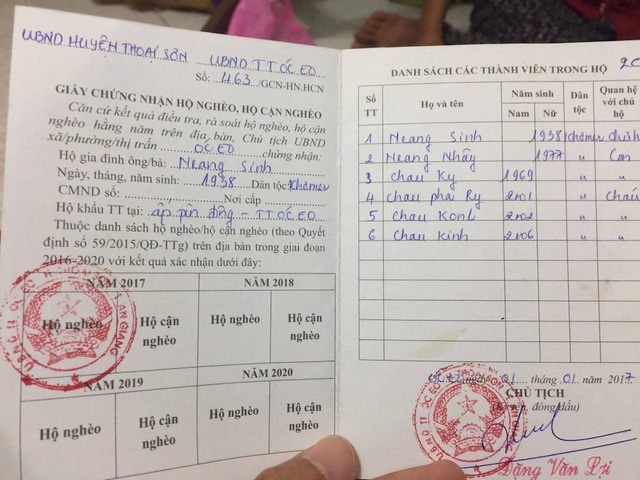 UBND HUYỆN THOẠI SƠN UBND TT ÓC EO
Số: 463/GCN-HN.HCN
GIẤY CHỨNG NHẬN HỘ NGHÈO, HỘ CẬN NGHÈO
Căn cứ kết quả điều tra, rà soát hộ nghèo, hộ cận
nghèo hằng năm trên địa bàn, Chủ tịch UBND
xã/phường/thị trấn ÓC EO chứng nhận:
Hộ gia đình ông/bà: Neang Sinh
Ngày, tháng, năm sinh: 1938 Dân tộc: Khámer
CMND số: Nơi cấp
Hộ khẩu TT tại: ấp TT ÓC EO
Thuộc danh sách hộ nghèo/hộ cận nghèo (theo Quyết
định số 59/2015/QĐ-TTg) trên địa bàn trong giai đoạn
2016-2020 với kết quả xác nhận dưới đây:
NĂM 2017 NĂM 2018
Hộ nghèo Hộ cận nghèo Hộ nghèo Hộ cận nghèo
NĂM 2019 NĂM 2020
Hộ nghèo Hộ cận nghèo Hộ nghèo Hộ cận nghèo
DANH SÁCH CÁC THÀNH VIÊN TRONG HỘ 20
Số TT Họ và tên Năm sinh Nam Nữ Dân tộc Quan hệ với chủ hộ
1 Neang Sinh 1938 Khámer
2 Neang Nhây 1977 " Con
3 Chau Ky 1969 " "
4 Chau pha Ry 2001 " cháu
5 Chau Konl 2002 " "
6 Chau Kinh 2006 " "
ngày 01 tháng 01 năm 2017
CHỦ TỊCH
(Ký tên, đóng dấu)
Đặng Văn Lợi